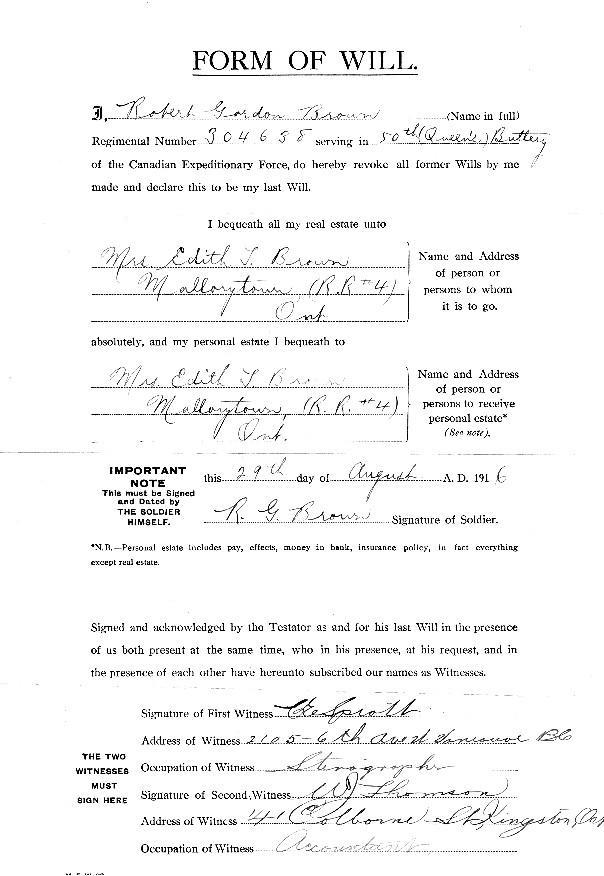 FORM OF WILL.
I, Robert Gordon Brown (Name in full)
Regimental Number 304638 serving in 50th (Queen's) Battery
of the Canadian Expeditionary Force, do hereby revoke all former Wills by me
made and declare this to be my last Will.
I bequeath all my real estate unto
Mrs Edith T. Brown
Mallorytown, (R.R #4)
Ont.
Name and Address
of person or
persons to whom
it is to go.
absolutely, and my personal estate I bequeath to
Mrs. Edith T. Brown
Mallorytown, (R. R. #4)
Ont.
Name and Address
of person or
persons to receive
personal estate*
(See note).
IMPORTANT
NOTE
This must be Signed
and Dated by
THE SOLDIER
HIMSELF.
this 29th day of August A. D. 1916
R. G. Brown Signature of Soldier.
*N.B.—Personal estate includes pay, effects, money in bank, insurance policy, in fact everything
except real estate.
Signed and acknowledged by the Testator as and for his last Will in the presence
of us both present at the same time, who in his presence, at his request, and in
the presence of each other have hereunto subscribed our names as Witnesses.
THE TWO
WITNESSES
MUST
SIGN HERE
Signature of First Witness
Address of Witness 2105-6th Ave
Occupation of Witness Stenographer
Signature of Second Witness Thomson
Address of Witness 41 Colborne St Kingston
Occupation of Witness Accountant